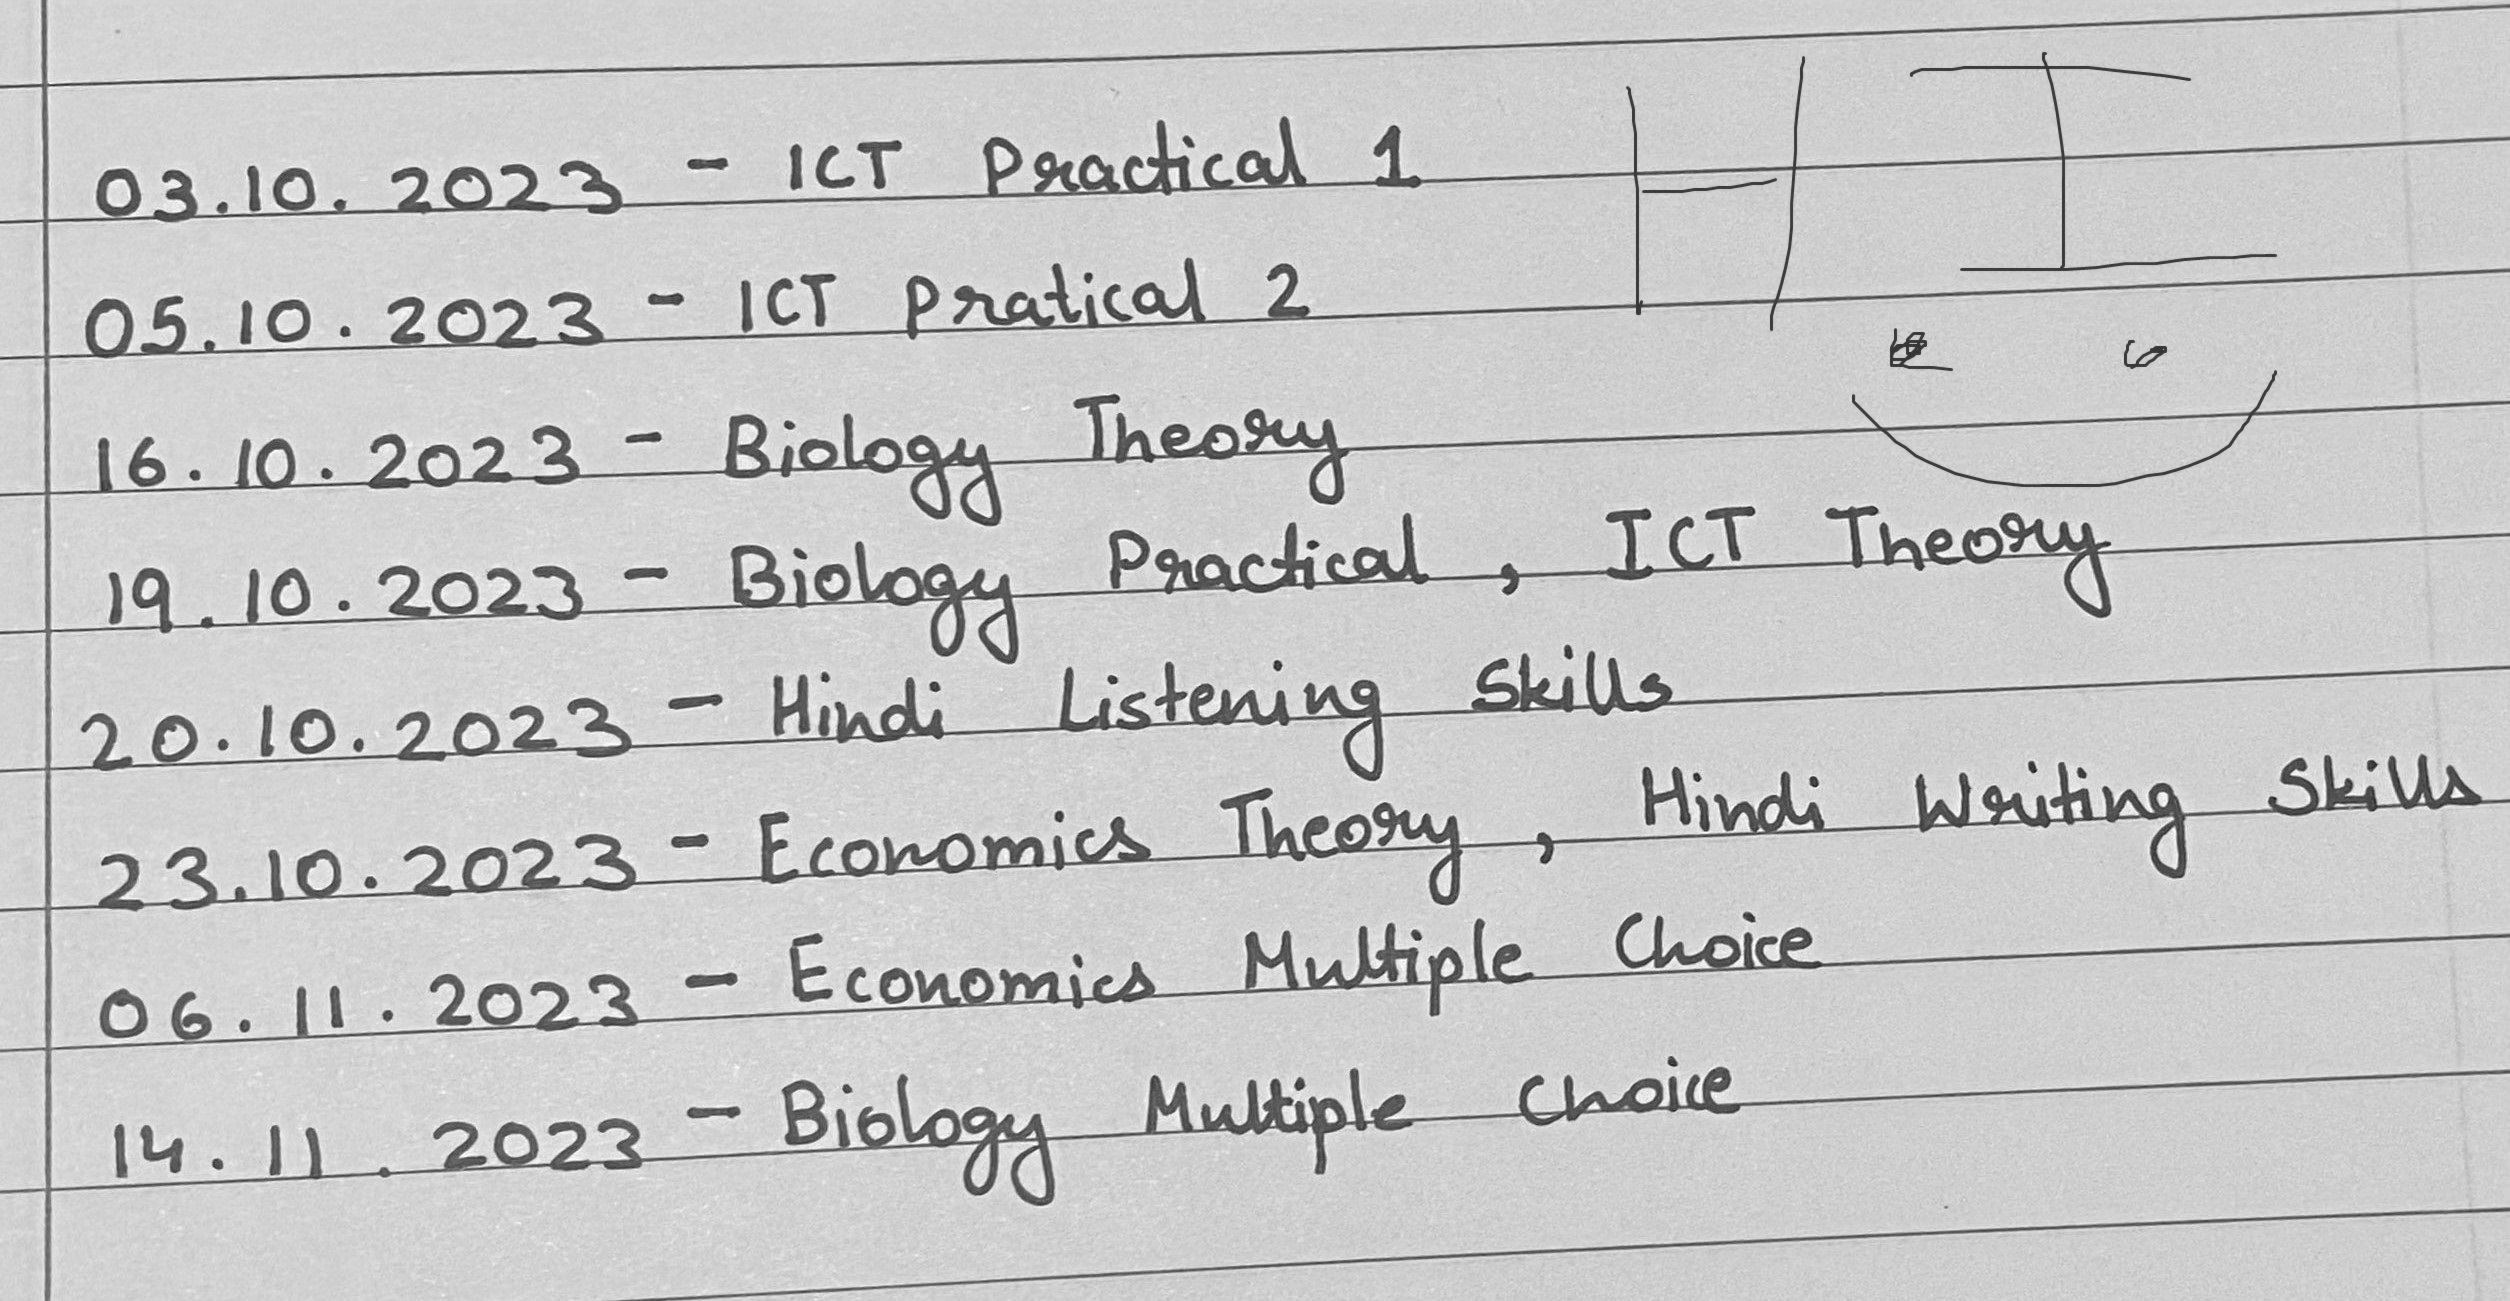 HI
03.10.2023 - ICT Practical 1
05.10.2023 - ICT Pratical 2
16.10.2023 - Biology Theory
19.10.2023 - Biology Practical, ICT Theory
20.10.2023 - Hindi Listening Skills
23.10.2023 - Economics Theory, Hindi Writing Skills
06.11.2023 - Economics Multiple Choice
14.11.2023 - Biology Multiple Choice